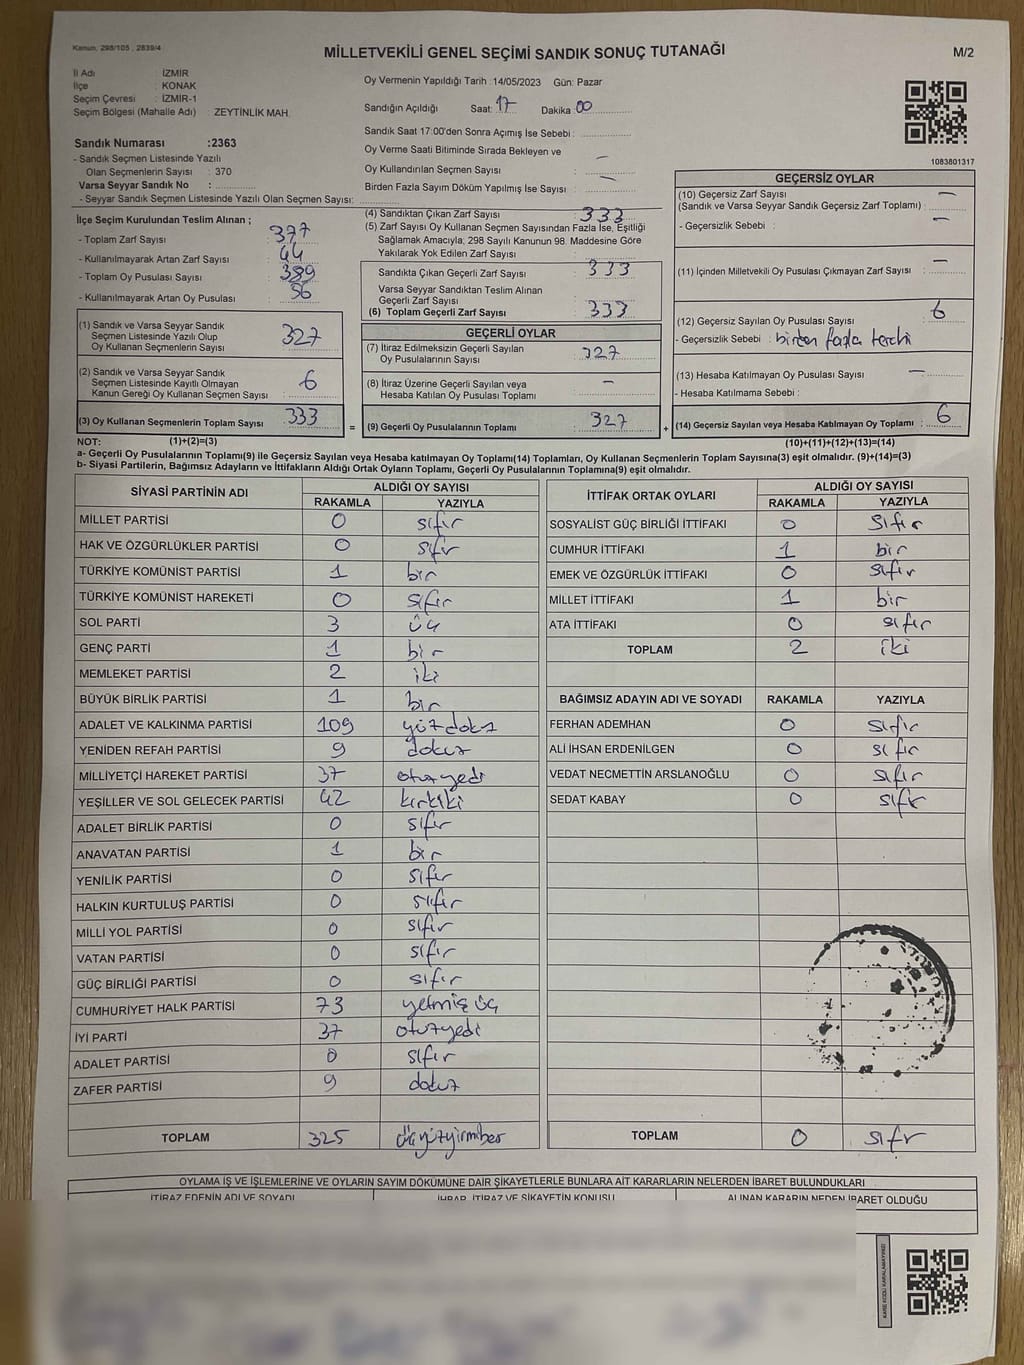 Kanun. 298/105 , 2839/4
MİLLETVEKİLİ GENEL SEÇİMİ SANDIK SONUÇ TUTANAĞI
M/2
İl Adı : İZMİR
İlçe : KONAK
Seçim Çevresi : İZMİR-1
Seçim Bölgesi (Mahalle Adı) : ZEYTİNLİK MAH.
Oy Vermenin Yapıldığı Tarih :14/05/2023 Gün: Pazar
Sandığın Açıldığı Saat: 17 Dakika 00
Sandık Saat 17:00'den Sonra Açımış İse Sebebi :
Oy Verme Saati Bitiminde Sırada Bekleyen ve
Oy Kullandırılan Seçmen Sayısı : —
Birden Fazla Sayım Döküm Yapılmış İse Sayısı : —
1083801317
Sandık Numarası :2363
- Sandık Seçmen Listesinde Yazılı
Olan Seçmenlerin Sayısı : 370
Varsa Seyyar Sandık No :
- Seyyar Sandık Seçmen Listesinde Yazılı Olan Seçmen Sayısı:
İlçe Seçim Kurulundan Teslim Alınan ;
- Toplam Zarf Sayısı : 377
- Kullanılmayarak Artan Zarf Sayısı : 44
- Toplam Oy Pusulası Sayısı : 389
- Kullanılmayarak Artan Oy Pusulası : 56
(1) Sandık ve Varsa Seyyar Sandık
Seçmen Listesinde Yazılı Olup
Oy Kullanan Seçmenlerin Sayısı : 327
(2) Sandık ve Varsa Seyyar Sandık
Seçmen Listesinde Kayıtlı Olmayan
Kanun Gereği Oy Kullanan Seçmen Sayısı : 6
(3) Oy Kullanan Seçmenlerin Toplam Sayısı : 333
(4) Sandıktan Çıkan Zarf Sayısı : 333
(5) Zarf Sayısı Oy Kullanan Seçmen Sayısından Fazla İse, Eşitliği
Sağlamak Amacıyla, 298 Sayılı Kanunun 98. Maddesine Göre
Yakılarak Yok Edilen Zarf Sayısı :
Sandıkta Çıkan Geçerli Zarf Sayısı : 333
Varsa Seyyar Sandıktan Teslim Alınan
Geçerli Zarf Sayısı :
(6) Toplam Geçerli Zarf Sayısı : 333
GEÇERLİ OYLAR
(7) İtiraz Edilmeksizin Geçerli Sayılan
Oy Pusulalarının Sayısı : 327
(8) İtiraz Üzerine Geçerli Sayılan veya
Hesaba Katılan Oy Pusulası Toplamı : —
= (9) Geçerli Oy Pusulalarının Toplamı : 327 +
GEÇERSİZ OYLAR
(10) Geçersiz Zarf Sayısı —
(Sandık ve Varsa Seyyar Sandık Geçersiz Zarf Toplamı) :
- Geçersizlik Sebebi : —
(11) İçinden Milletvekili Oy Pusulası Çıkmayan Zarf Sayısı : —
(12) Geçersiz Sayılan Oy Pusulası Sayısı : 6
- Geçersizlik Sebebi : birden fazla tercihi
(13) Hesaba Katılmayan Oy Pusulası Sayısı : —
- Hesaba Katılmama Sebebi :
(14) Geçersiz Sayılan veya Hesaba Katılmayan Oy Toplamı : 6
NOT: (1)+(2)=(3)
(10)+(11)+(12)+(13)=(14)
a- Geçerli Oy Pusulaları Toplamı(9) ile Geçersiz Sayılan veya Hesaba katılmayan Oy Toplamı(14) Toplamları, Oy Kullanan Seçmenlerin Toplam Sayısına(3) eşit olmalıdır. (9)+(14)=(3)
b- Siyasi Partilerin, Bağımsız Adayların ve İttifakların Aldığı Ortak Oyların Toplamı, Geçerli Oy Pusulalarının Toplamına(9) eşit olmalıdır.
SİYASİ PARTİNİN ADI ALDIĞI OY SAYISI
RAKAMLA YAZIYLA
MİLLET PARTİSİ 0 sıfır
HAK VE ÖZGÜRLÜKLER PARTİSİ 0 sıfır
TÜRKİYE KOMÜNİST PARTİSİ 1 bir
TÜRKİYE KOMÜNİST HAREKETİ 0 sıfır
SOL PARTİ 3 üç
GENÇ PARTİ 1 bir
MEMLEKET PARTİSİ 2 iki
BÜYÜK BİRLİK PARTİSİ 1 bir
ADALET VE KALKINMA PARTİSİ 109 yüzdokuz
YENİDEN REFAH PARTİSİ 9 dokuz
MİLLİYETÇİ HAREKET PARTİSİ 37 otuzyedi
YEŞİLLER VE SOL GELECEK PARTİSİ 42 kırkiki
ADALET BİRLİK PARTİSİ 0 sıfır
ANAVATAN PARTİSİ 1 bir
YENİLİK PARTİSİ 0 sıfır
HALKIN KURTULUŞ PARTİSİ 0 sıfır
MİLLİ YOL PARTİSİ 0 sıfır
VATAN PARTİSİ 0 sıfır
GÜÇ BİRLİĞİ PARTİSİ 0 sıfır
CUMHURİYET HALK PARTİSİ 73 yetmiş üç
İYİ PARTİ 37 otuzyedi
ADALET PARTİSİ 0 sıfır
ZAFER PARTİSİ 9 dokuz
TOPLAM 325 üçyüzyirmibeş
İTTİFAK ORTAK OYLARI ALDIĞI OY SAYISI
RAKAMLA YAZIYLA
SOSYALİST GÜÇ BİRLİĞİ İTTİFAKI 0 sıfır
CUMHUR İTTİFAKI 1 bir
EMEK VE ÖZGÜRLÜK İTTİFAKI 0 sıfır
MİLLET İTTİFAKI 1 bir
ATA İTTİFAKI 0 sıfır
TOPLAM 2 iki
BAĞIMSIZ ADAYIN ADI VE SOYADI RAKAMLA YAZIYLA
FERHAN ADEMHAN 0 sıfır
ALİ İHSAN ERDENİLGEN 0 sıfır
VEDAT NECMETTİN ARSLANOĞLU 0 sıfır
SEDAT KABAY 0 sıfır
TOPLAM 0 sıfır
OYLAMA İŞ VE İŞLEMLERİNE VE OYLARIN SAYIM DÖKÜMÜNE DAİR ŞİKAYETLERLE BUNLARA AİT KARARLARIN NELERDEN İBARET BULUNDUKLARI
İTİRAZ EDENİN ADI VE SOYADI İHBAR, İTİRAZ VE ŞİKAYETİN KONUSU ALINAN KARARIN NEDEN İBARET OLDUĞU
KARE KODU KARALAMAYINIZ!